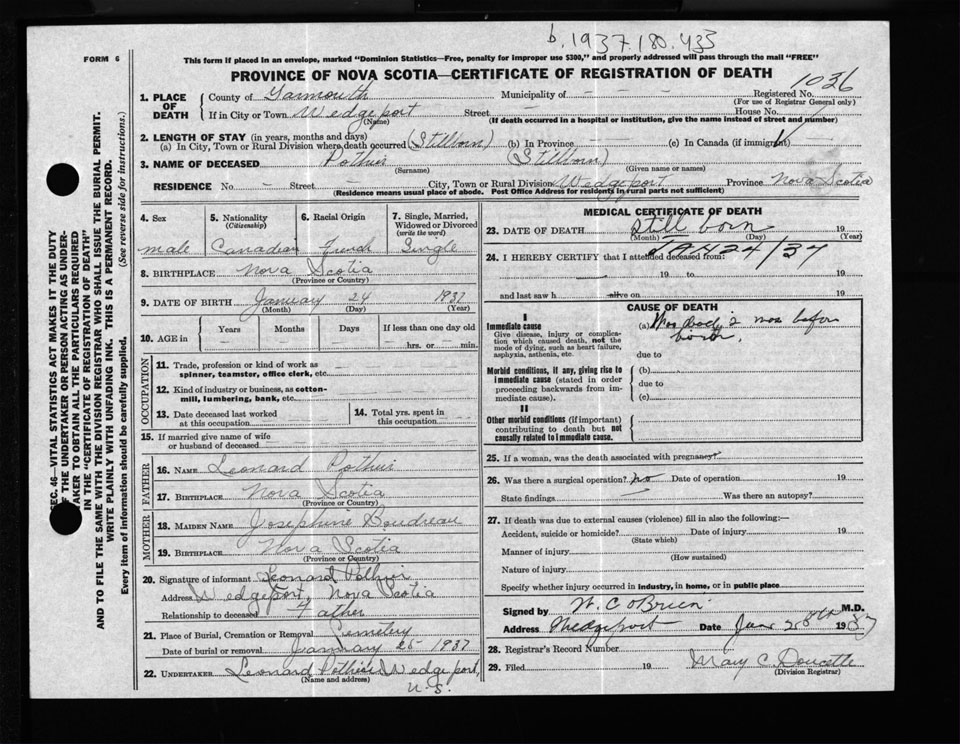 b. 1937.180.433
FORM 6
This form if placed in an envelope, marked "Dominion Statistics—Free, penalty for improper use $300," and properly addressed will pass through the mail "FREE"
PROVINCE OF NOVA SCOTIA—CERTIFICATE OF REGISTRATION OF DEATH
1036
1. PLACE OF DEATH
County of Yarmouth Municipality of - - - Registered No.
(For use of Registrar General only)
If in City or Town Wedgeport Street - House No.
(Name) (If death occurred in a hospital or institution, give the name instead of street and number)
2. LENGTH OF STAY (in years, months and days)
(a) In City, Town or Rural Division where death occurred (Stillborn) (b) In Province - (c) In Canada (if immigrant)
3. NAME OF DECEASED Pothier (Stillborn)
(Surname) (Given name or names)
RESIDENCE No. - Street - City, Town or Rural Division Wedgeport Province Nova Scotia
(Residence means usual place of abode. Post Office Address for residents in rural parts not sufficient)
SEC. 46—VITAL STATISTICS ACT MAKES IT THE DUTY
OF THE UNDERTAKER OR PERSON ACTING AS UNDER-
TAKER TO OBTAIN ALL THE PARTICULARS REQUIRED
IN THE "CERTIFICATE OF REGISTRATION OF DEATH"
AND TO FILE THE SAME WITH THE DIVISION REGISTRAR WHO SHALL ISSUE THE BURIAL PERMIT.
WRITE PLAINLY WITH UNFADING INK. THIS IS A PERMANENT RECORD.
Every item of information should be carefully supplied. (See reverse side for instructions.)
4. Sex 5. Nationality (Citizenship) 6. Racial Origin 7. Single, Married, Widowed or Divorced (write the word)
male Canadian French Single
8. BIRTHPLACE Nova Scotia
(Province or Country)
9. DATE OF BIRTH January 24 1937
(Month) (Day) (Year)
10. AGE in Years Months Days If less than one day old
- - - - hrs. or - min.
OCCUPATION
11. Trade, profession or kind of work as
spinner, teamster, office clerk, etc.
12. Kind of industry or business, as cotton-
mill, lumbering, bank, etc.
13. Date deceased last worked
at this occupation
14. Total yrs. spent in
this occupation
15. If married give name of wife
or husband of deceased
FATHER
16. NAME Leonard Pothier
17. BIRTHPLACE Nova Scotia
(Province or Country)
MOTHER
18. MAIDEN NAME Josephine Boudreau
19. BIRTHPLACE Nova Scotia
(Province or Country)
20. Signature of informant Leonard Pothier
Address Wedgeport, Nova Scotia
Relationship to deceased Father
21. Place of Burial, Cremation or Removal Cemetery
Date of burial or removal January 25 1937
22. UNDERTAKER Leonard Pothier Wedgeport,
(Name and address)
N.S.
MEDICAL CERTIFICATE OF DEATH
23. DATE OF DEATH Still born 19
(Month) (Day) (Year)
24. I HEREBY CERTIFY that I attended deceased from: JAN 24/37
19 to 19
and last saw h alive on 19
CAUSE OF DEATH
I
Immediate cause
Give disease, injury or complica-
tion which caused death, not the
mode of dying, such as heart failure,
asphyxia, asthenia, etc.
(a) Was dead 2 mos before
birth.
due to
Morbid conditions, if any, giving rise to
immediate cause (stated in order
proceeding backwards from im-
mediate cause).
(b)
due to
(c)
II
Other morbid conditions (if important)
contributing to death but not
causally related to immediate cause.
25. If a woman, was the death associated with pregnancy?
26. Was there a surgical operation? no Date of operation 19
State findings Was there an autopsy?
27. If death was due to external causes (violence) fill in also the following:—
Accident, suicide or homicide? Date of injury 19
(State which)
Manner of injury
(How sustained)
Nature of injury
Specify whether injury occurred in industry, in home, or in public place
Signed by W. C. O'Brien M.D.
Address Wedgeport Date Jan 28th 1937
28. Registrar's Record Number
29. Filed 19 Mary C. Doucette
(Division Registrar)